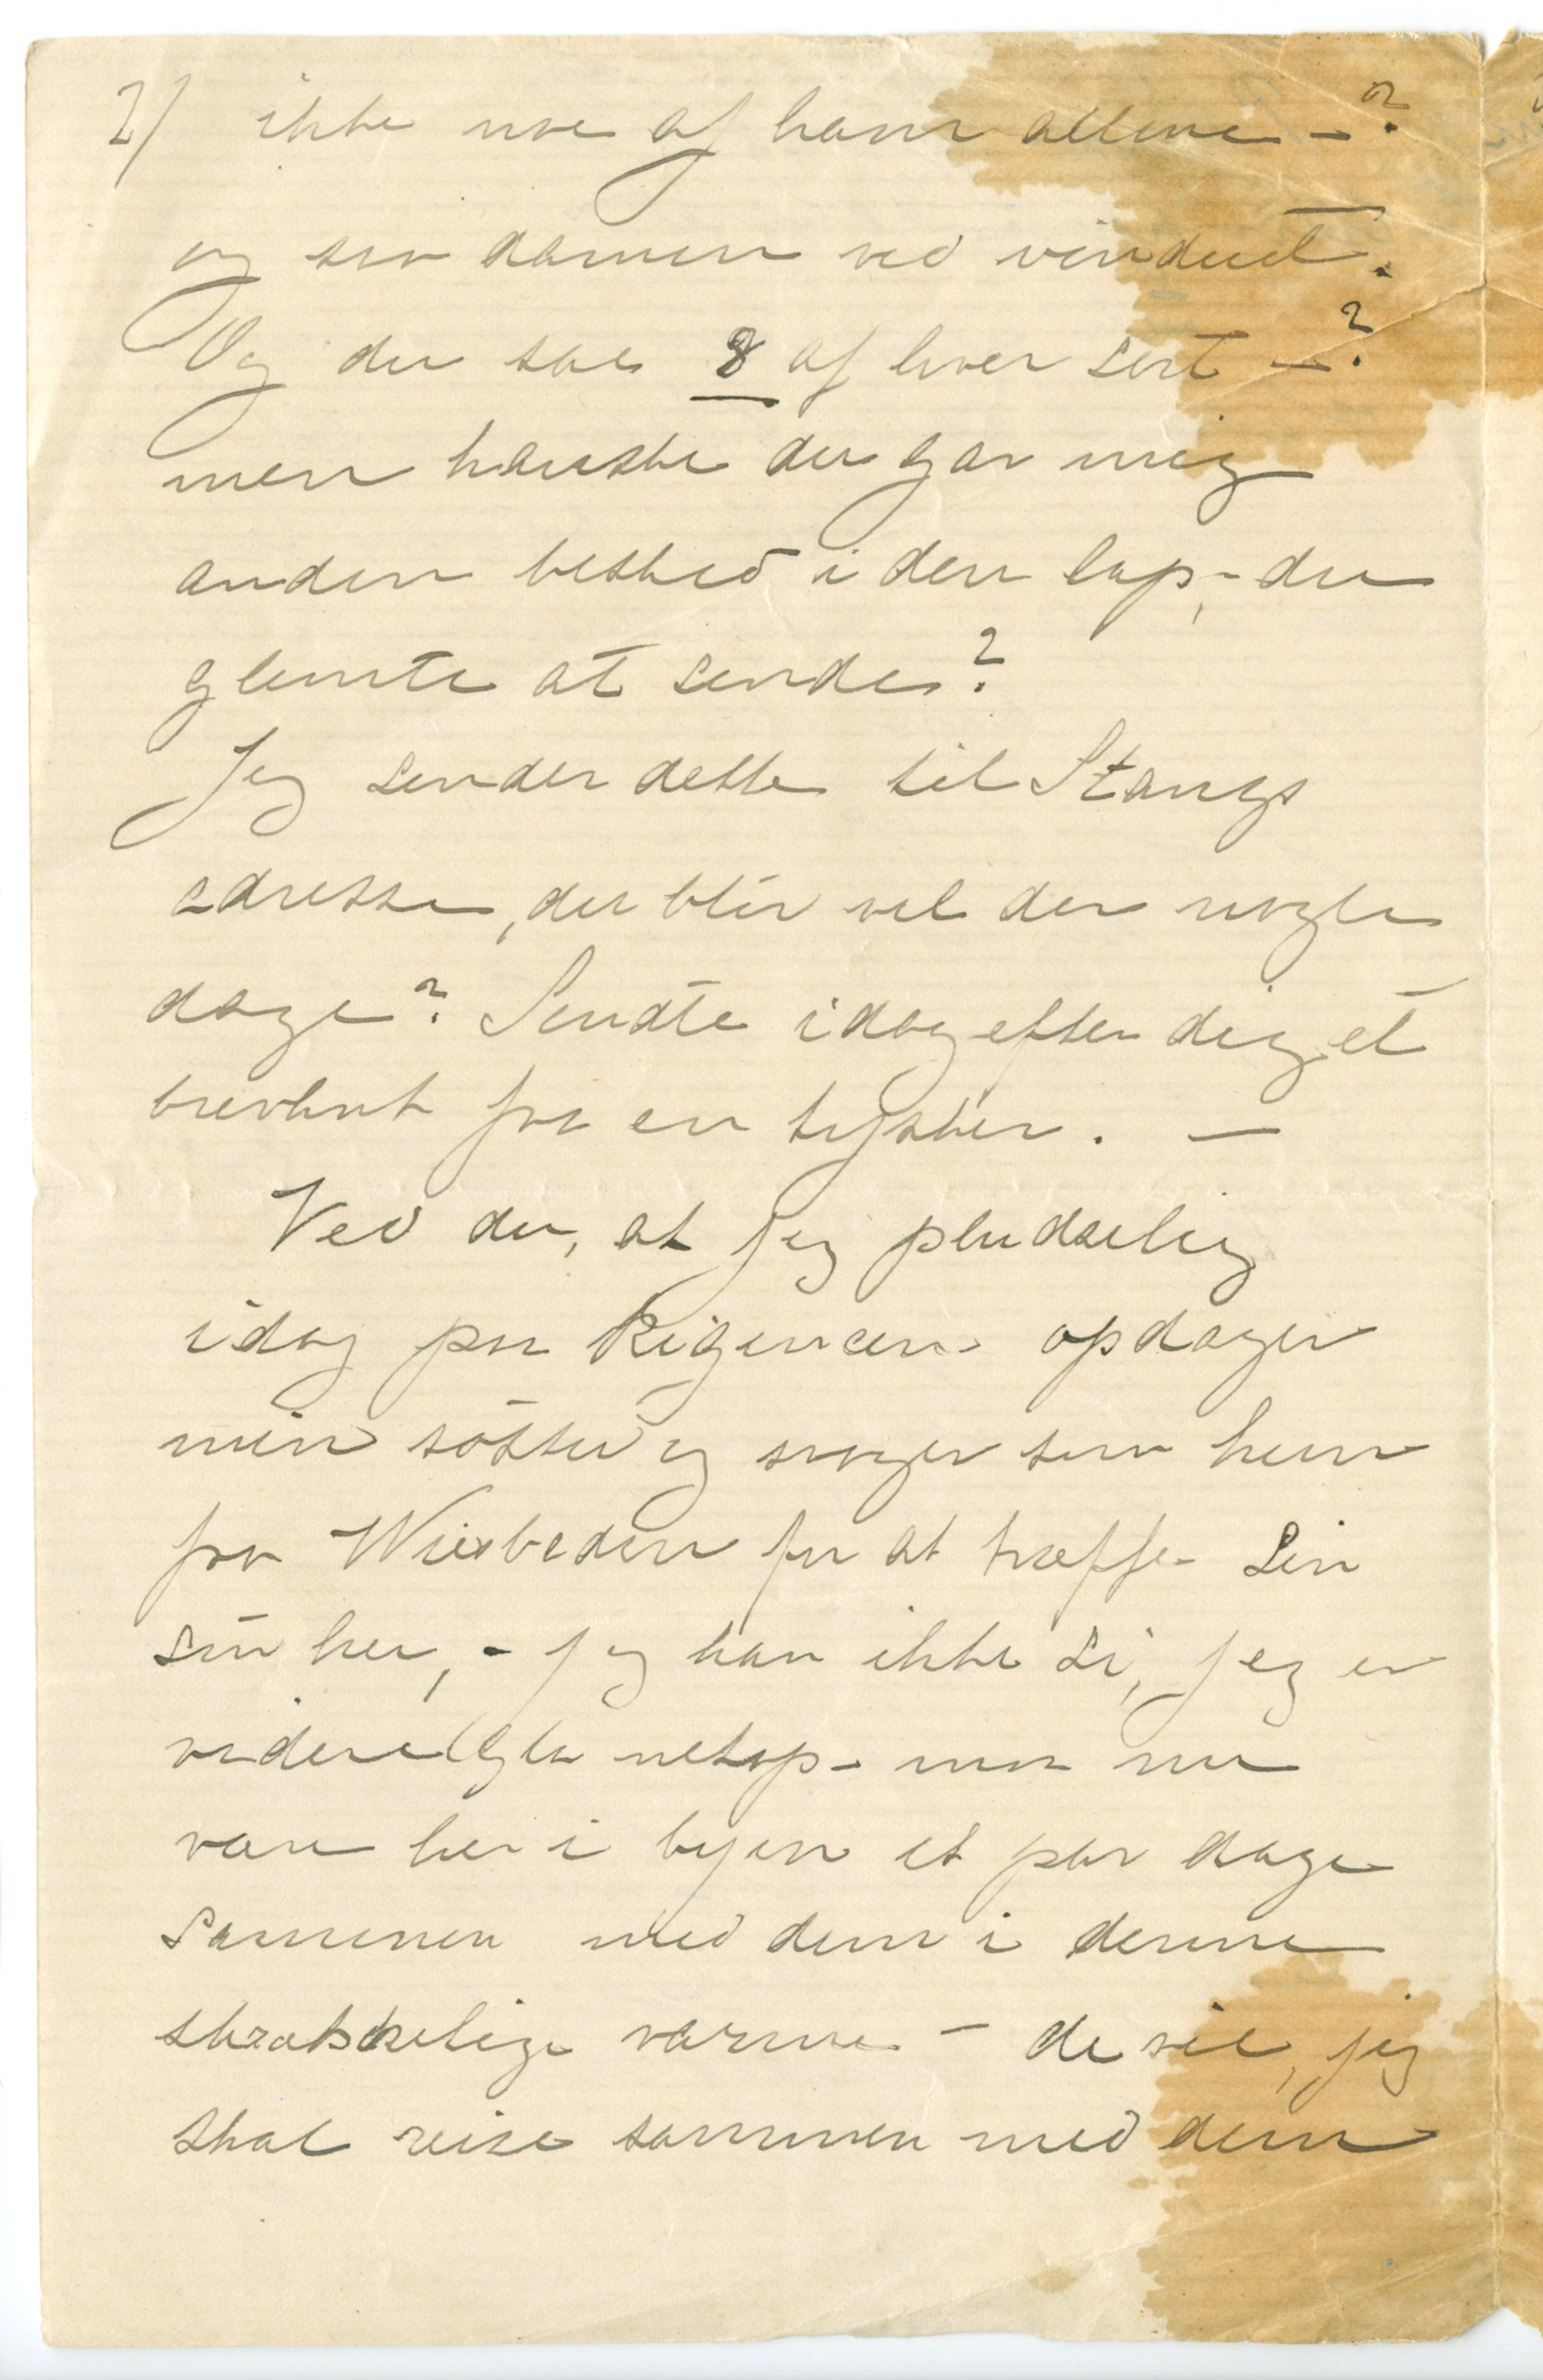 2/ ikke noe af ham allene – ?
og saa damen ved vinduet.
Og du sae 8 af hver sort – ?
men kanske du gav mig
anden besked i den lap, – du
glemte at sende?
Jeg sender dette til Stangs
adresse, du blir vel der nogle
dage? Sendte idag efter dig et
brevkort fra en tysker. –
Ved du, at jeg pludselig
idag paa Regencen opdager
min søster og svoger som kom
fra Wiesbaden for at træffe sin
søn her, – jeg kan ikke si, jeg er
videre gla netop – maa nu
være her i byen et par dage
sammen med dem i denne
skrækkelige varme – de vil, jeg
skal reise sammen med dem